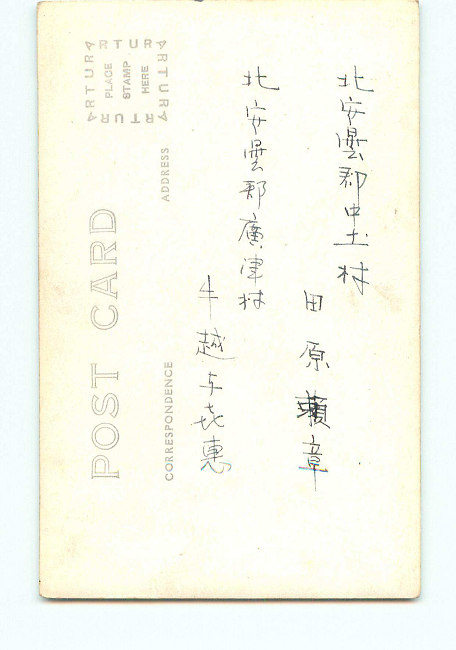 北安曇郡中土村
田原瀬章
北安曇郡廣津村
牛越与㐂惠
POST CARD
CORRESPONDENCE
ADDRESS
PLACE
STAMP
HERE
ARTURA
ARTURA
ARTURA
ARTURA